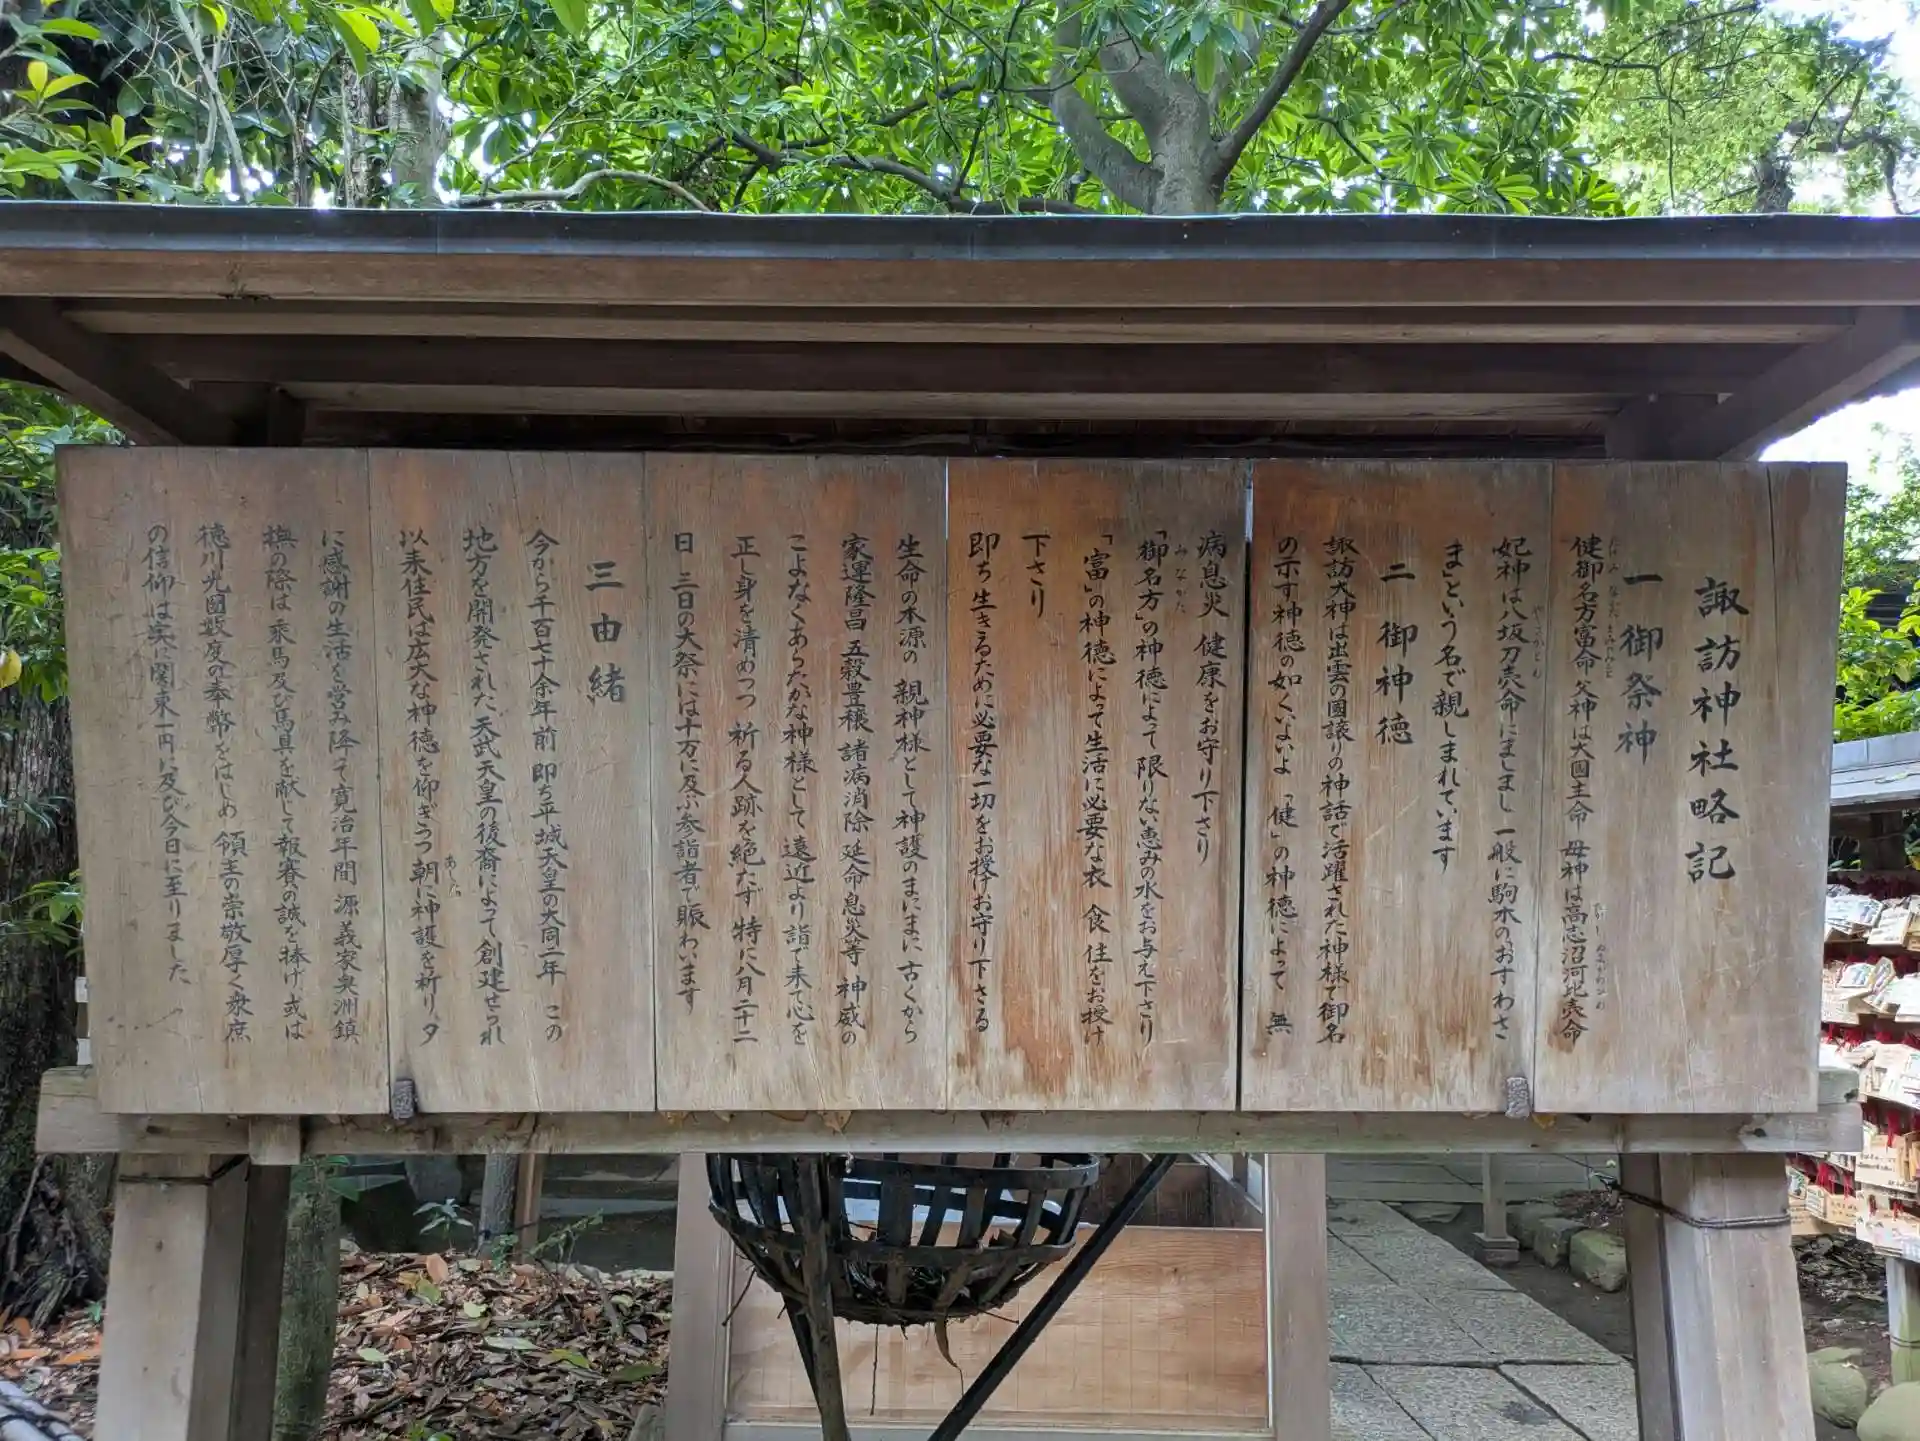 諏訪神社略記
一 御祭神
健御名方富命 父神は大國主命 母神は高志沼河比売命
妃神は八坂刀売命にましまし 一般に駒木のおすわさ
ま」という名で親しまれています
二 御神徳
諏訪大神は出雲の國譲りの神話で活躍された神様で御名
の示す神徳の如くいよいよ「健」の神徳によって 無
病息災 健康をお守り下さり
「御名方」の神徳によって 限りない恵みの水をお与え下さり
「富」の神徳によって生活に必要な衣 食 住をお授け
下さり
即ち生きるために必要な一切をお授けお守り下さる
生命の本源の 親神様として神護のまにまに古くから
家運隆昌 五穀豊穣 諸病消除 延命息災等 神威の
こよなくあらたかな神様として 遠近より詣で来て心を
正し身を清めつつ 祈る人跡を絶たず 特に八月二十二
日 三日の大祭には十万に及ぶ参詣者で賑わいます
三 由緒
今から千百七十余年前 即ち平城天皇の大同二年 この
地方を開発された 天武天皇の後裔によって 創建せられ
以来住民は広大な神徳を仰ぎつつ 朝に神護を祈り、夕
に感謝の生活を営み降って 寛治年間 源義家奥洲鎮
撫の際は 乗馬及び馬具を献じて報賽の誠を捧げ 或は
徳川光圀数度の奉幣をはじめ 領主の崇敬厚く衆庶
の信仰は実に関東一円に及び今日に至りました